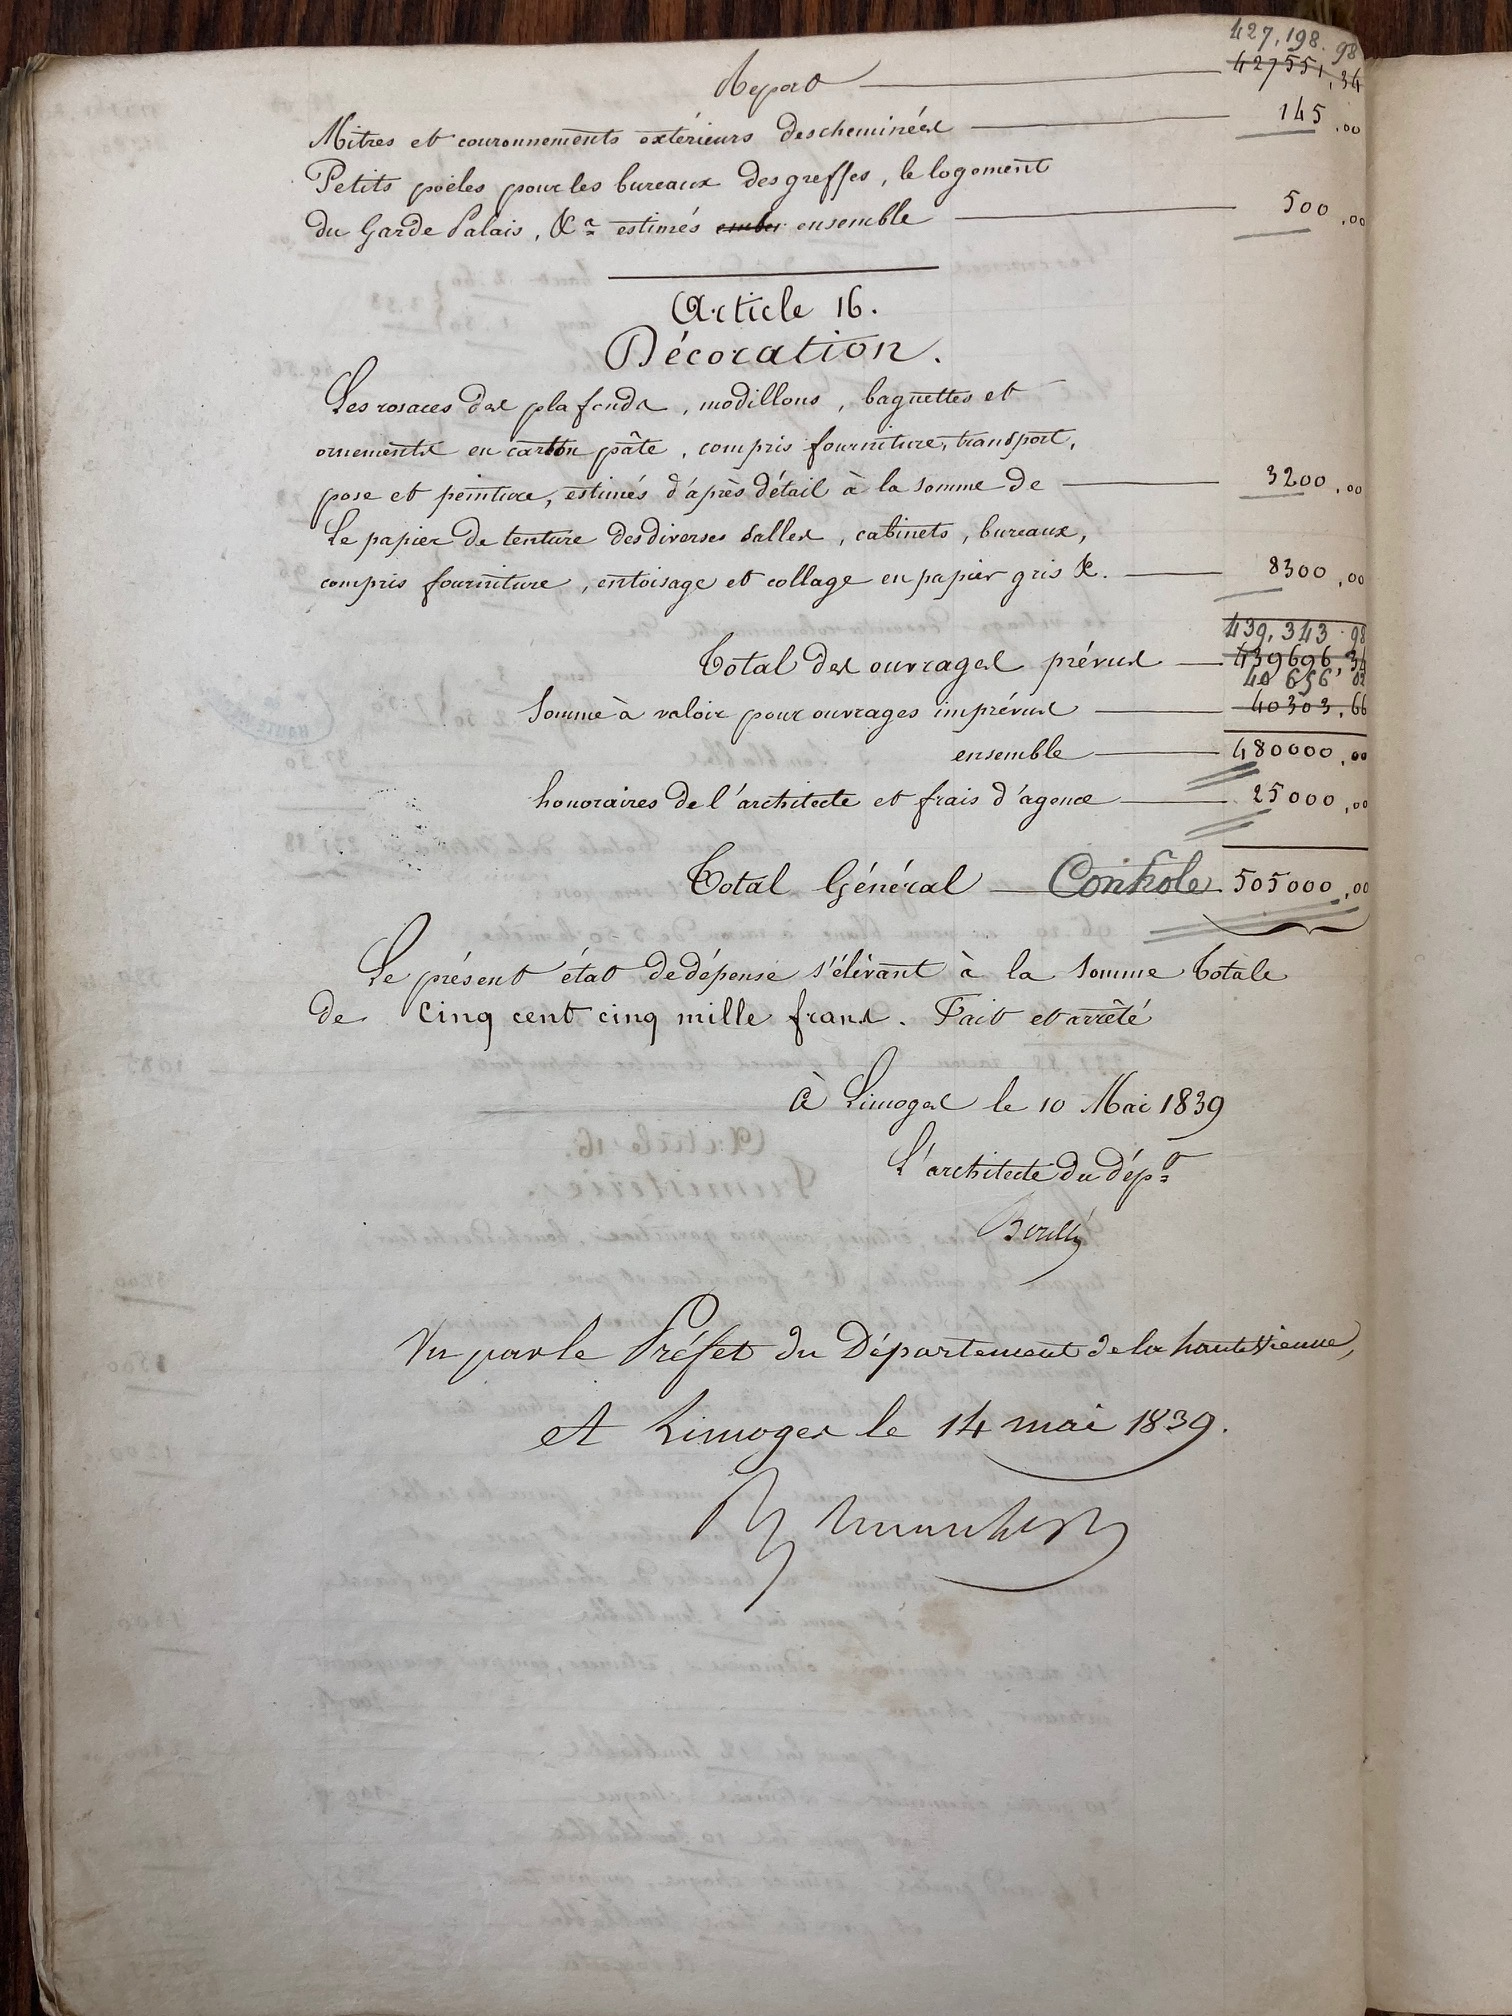 427,198.98
Report 427551,34
Mitres et couronnements extérieurs des cheminées 145,00
Petits poëles pour les bureaux des greffes, le logement
du Garde Palais, &a estimés ensemble 500,00
Article 16.
Décoration.
Les rosaces des plafonds, modillons, baguettes et
ornements en carton pâte, compris fourniture, transport,
pose et peinture, estimés d'après détail à la somme de 3200,00
Le papier de tenture des diverses salles, cabinets, bureaux,
compris fourniture, entoisage et collage en papier gris &. 8300,00
439,343.98
Total des ouvrages prévus 439696,34
40 656 02
Somme à valoir pour ouvrages imprévus 40303,66
ensemble 480000,00
honoraires de l'architecte et frais d'agence 25000,00
Total Général Contrôle 505000,00
Le présent état de dépense s'élèvant à la somme totale
de cinq cent cinq mille francs. Fait et arrêté
à Limoges le 10 Mai 1839
L'architecte du dépt
Vu par le Préfet du Département de la haute Vienne,
et Limoges le 14 mai 1839.